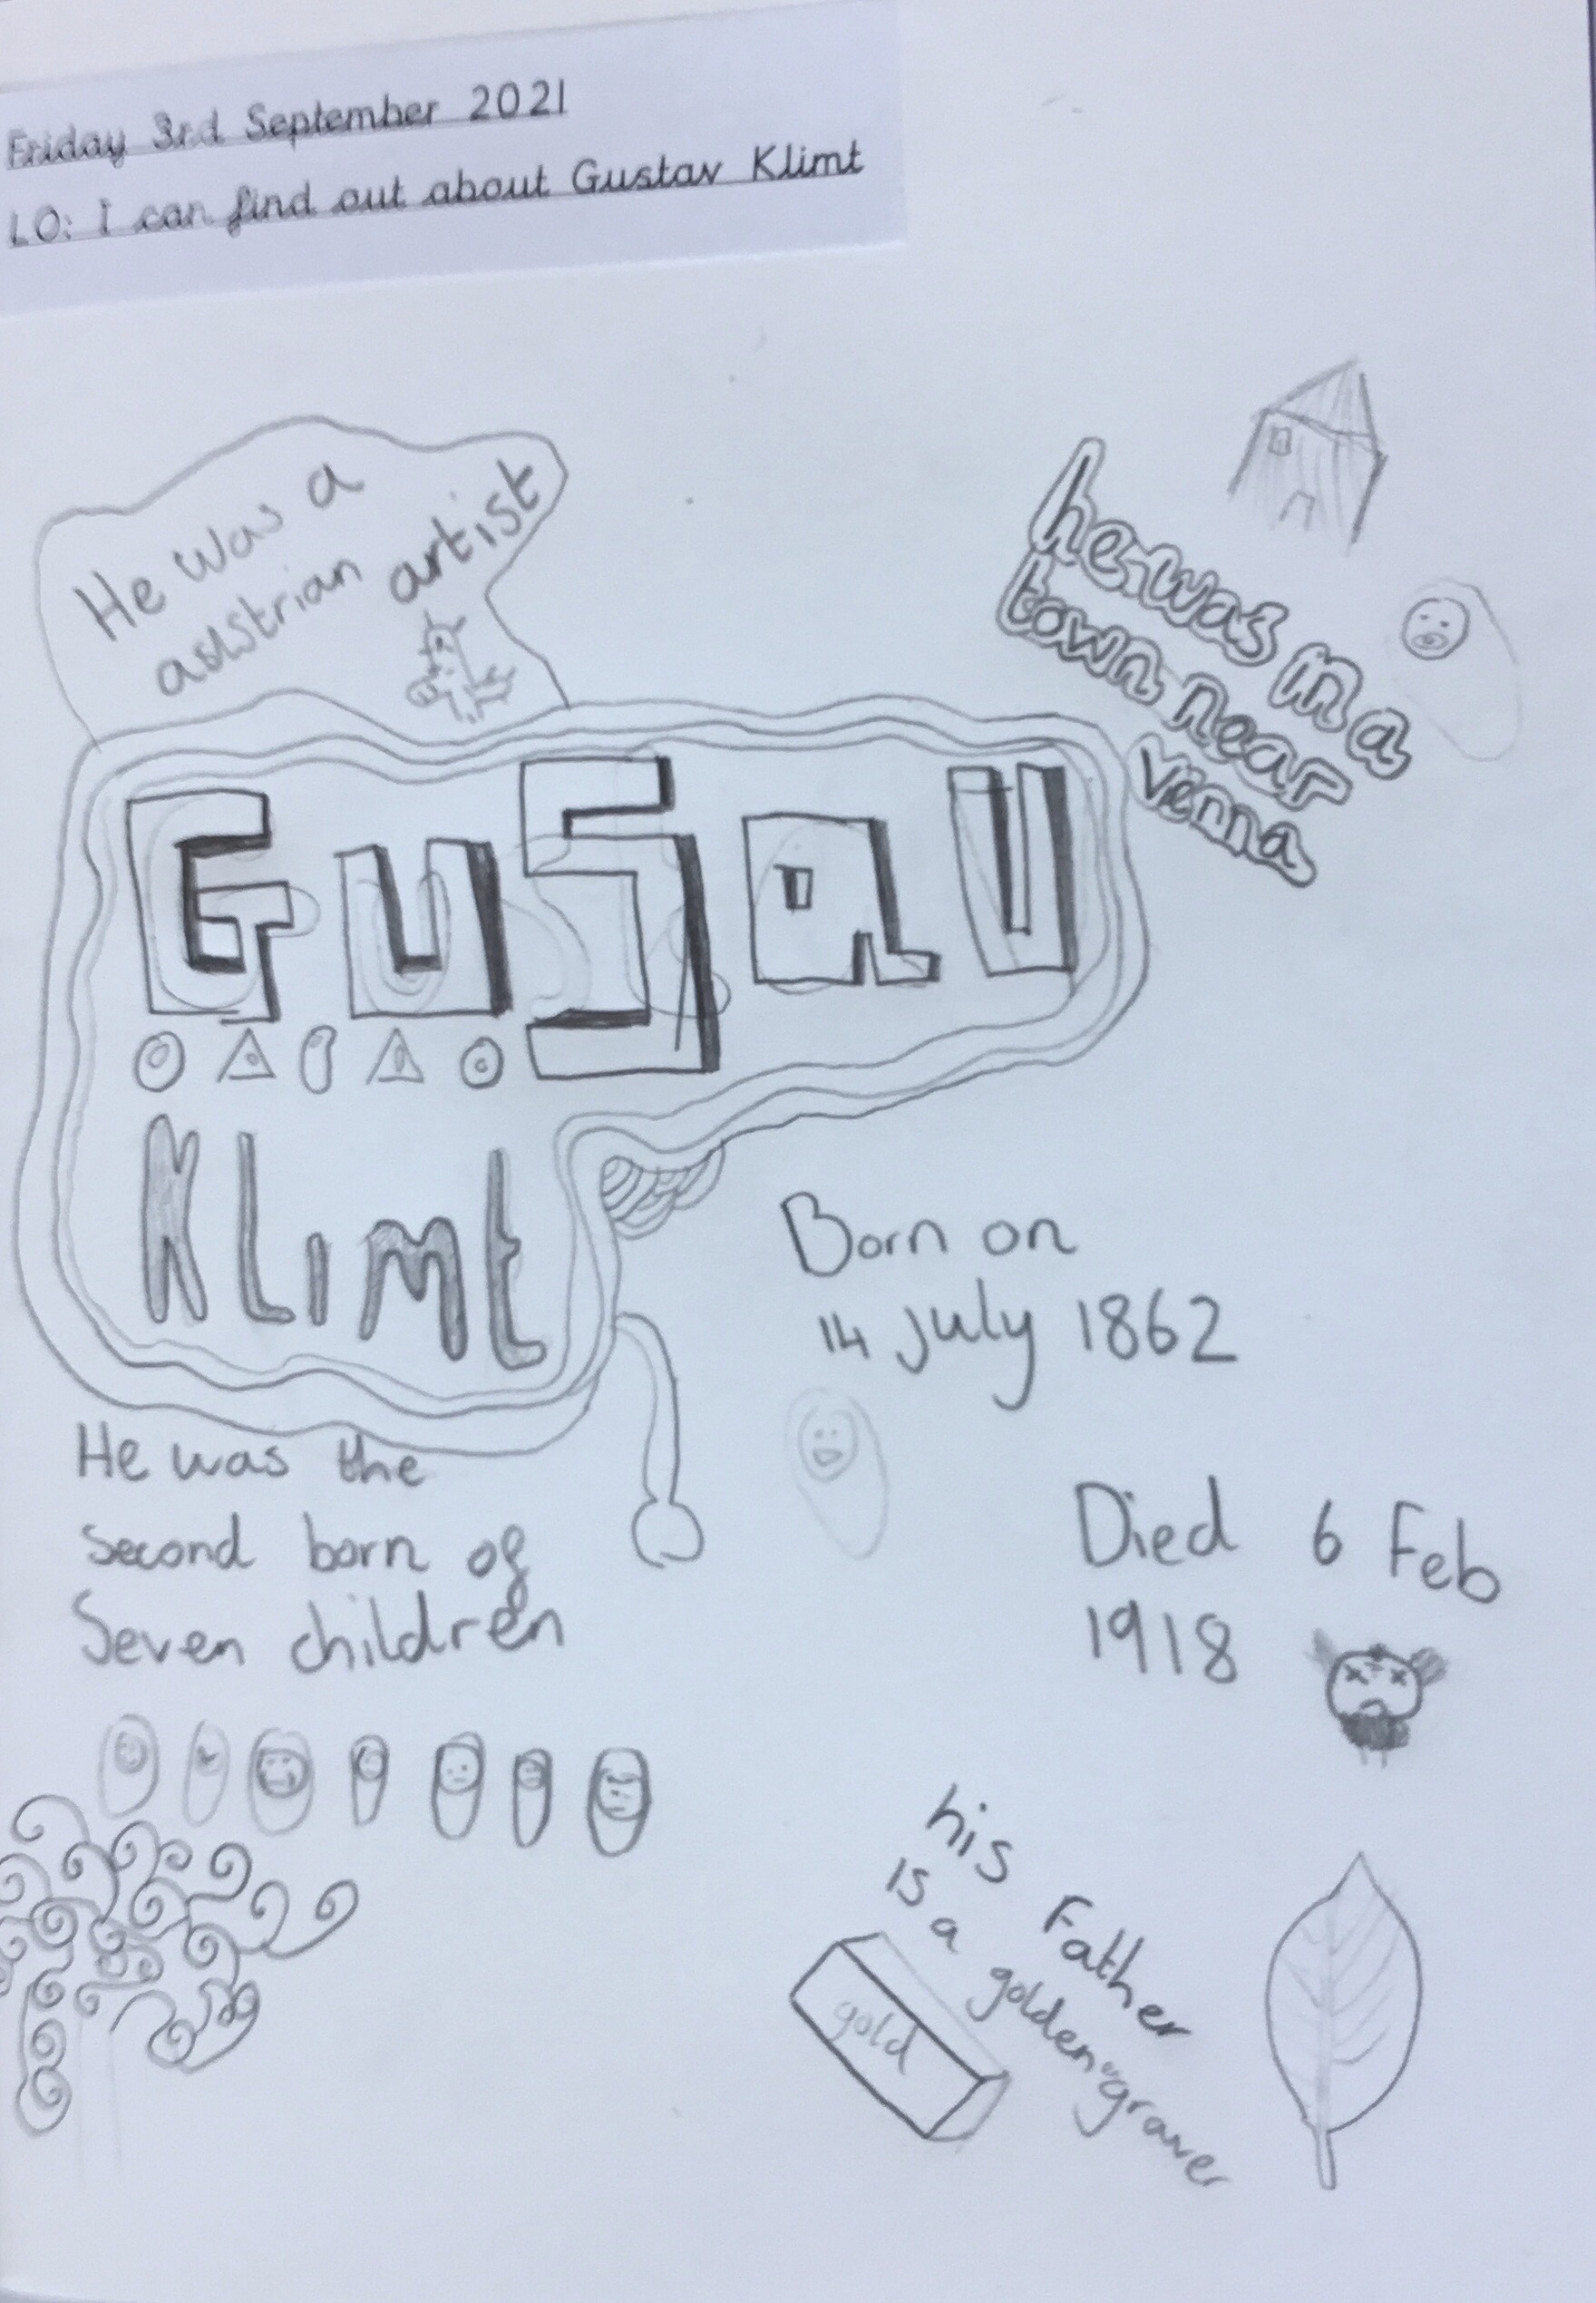 Friday 3rd September 2021
LO: I can find out about Gustav Klimt
He was a
austrian artist
he was in a
town near
vienna
GuSaV
Klimt
Born on
14 july 1862
He was the
second born of
Seven children
Died 6 Feb
1918
his Father
is a golden"graver
gold